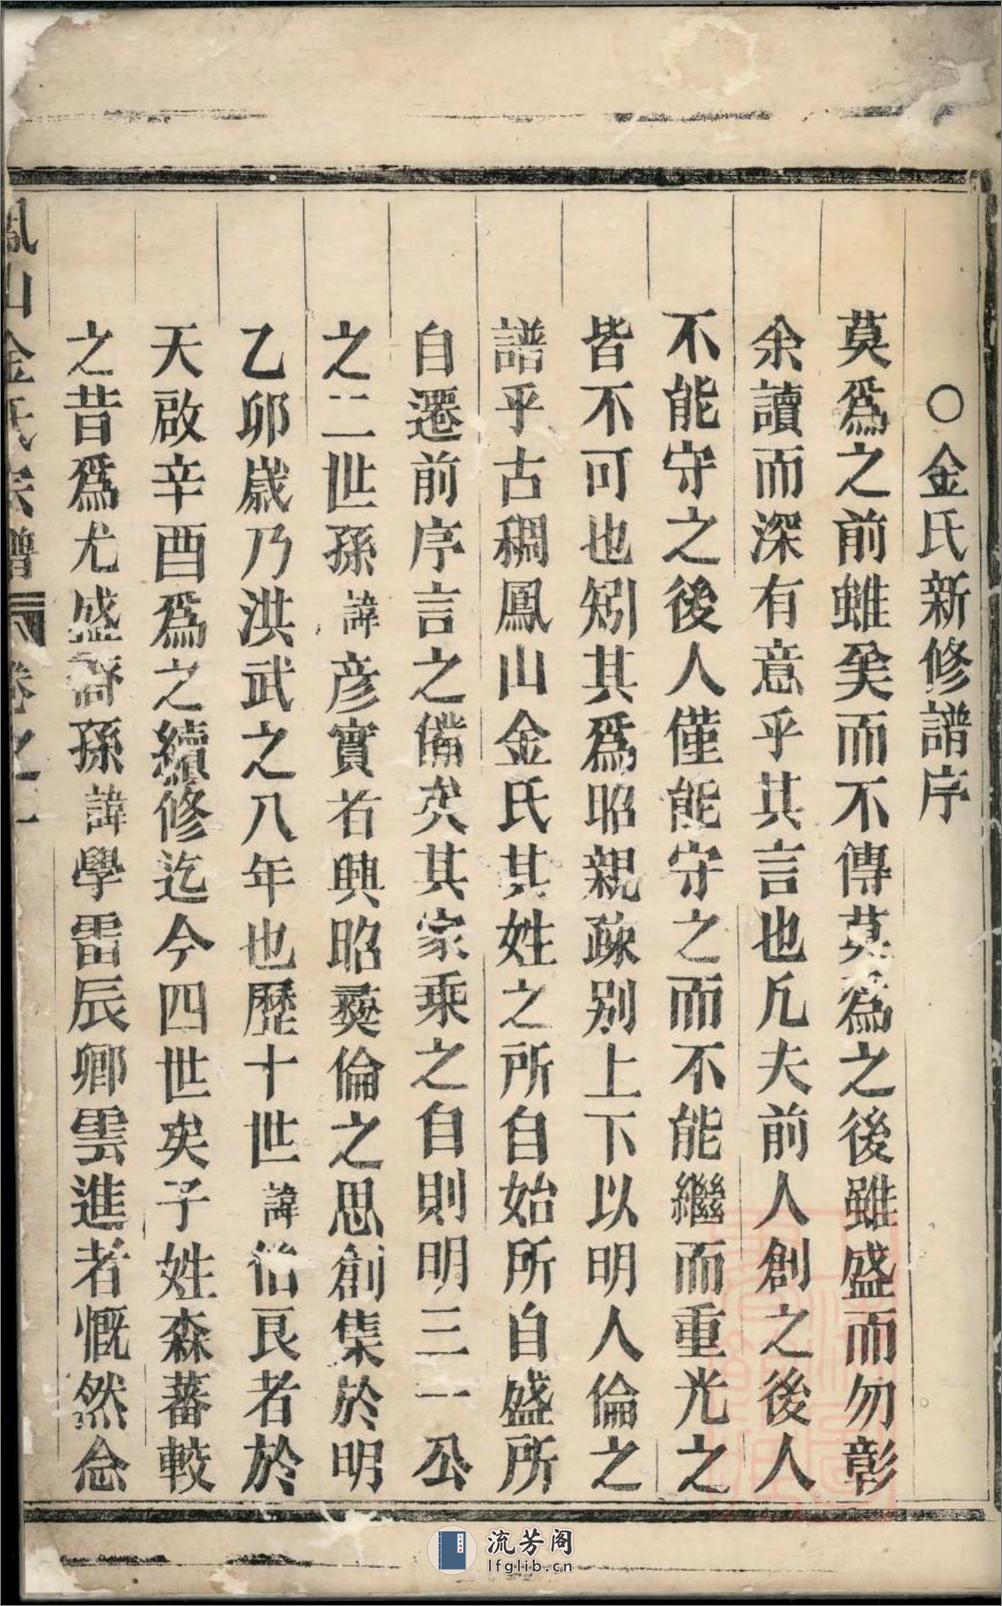 ○金氏新修譜序
莫爲之前雖美而不傳莫爲之後雖盛而勿彰
余讀而深有意乎其言也凡夫前人創之後人
不能守之後人僅能守之而不能繼而重光之
皆不可也矧其爲昭親疎别上下以明人倫之
譜乎古稠鳳山金氏其姓之所自始所自盛所
自遷前序言之備矣其家乘之自則明三一公
之二世孫諱彦實者興昭彛倫之思創集於明
乙卯歲乃洪武之八年也歷十世諱伯良者於
天啟辛酉爲之續修迄今四世矣子姓森蕃較
之昔爲尤盛裔孫諱學雷辰卿雲進者慨然念
鳳山金氏宗譜 卷之一
流芳阁
lfglib.cn